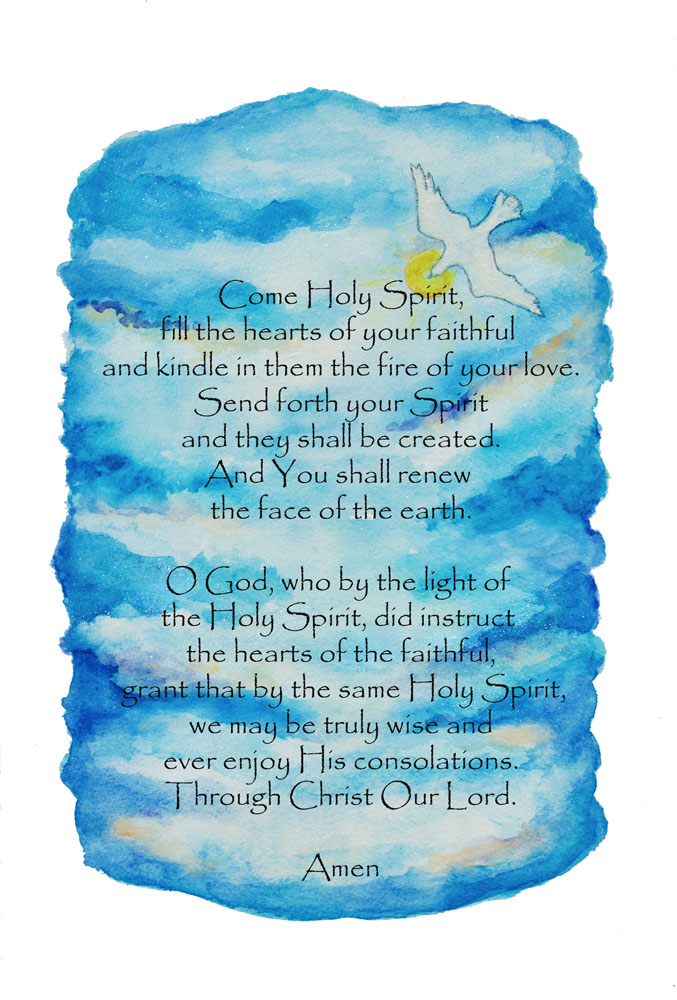 Come Holy Spirit,
fill the hearts of your faithful
and kindle in them the fire of your love.
Send forth your Spirit
and they shall be created.
And You shall renew
the face of the earth.
O God, who by the light of
the Holy Spirit, did instruct
the hearts of the faithful,
grant that by the same Holy Spirit,
we may be truly wise and
ever enjoy His consolations.
Through Christ Our Lord.
Amen